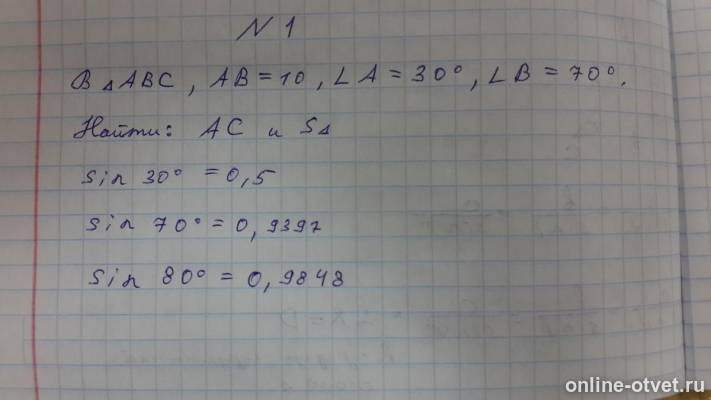 N 1
В △ ABC, AB = 10, ∠A = 30°, ∠B = 70°.
Найти: AC и S△
sin 30° = 0,5
sin 70° = 0,9397
sin 80° = 0,9848
online-otvet.ru